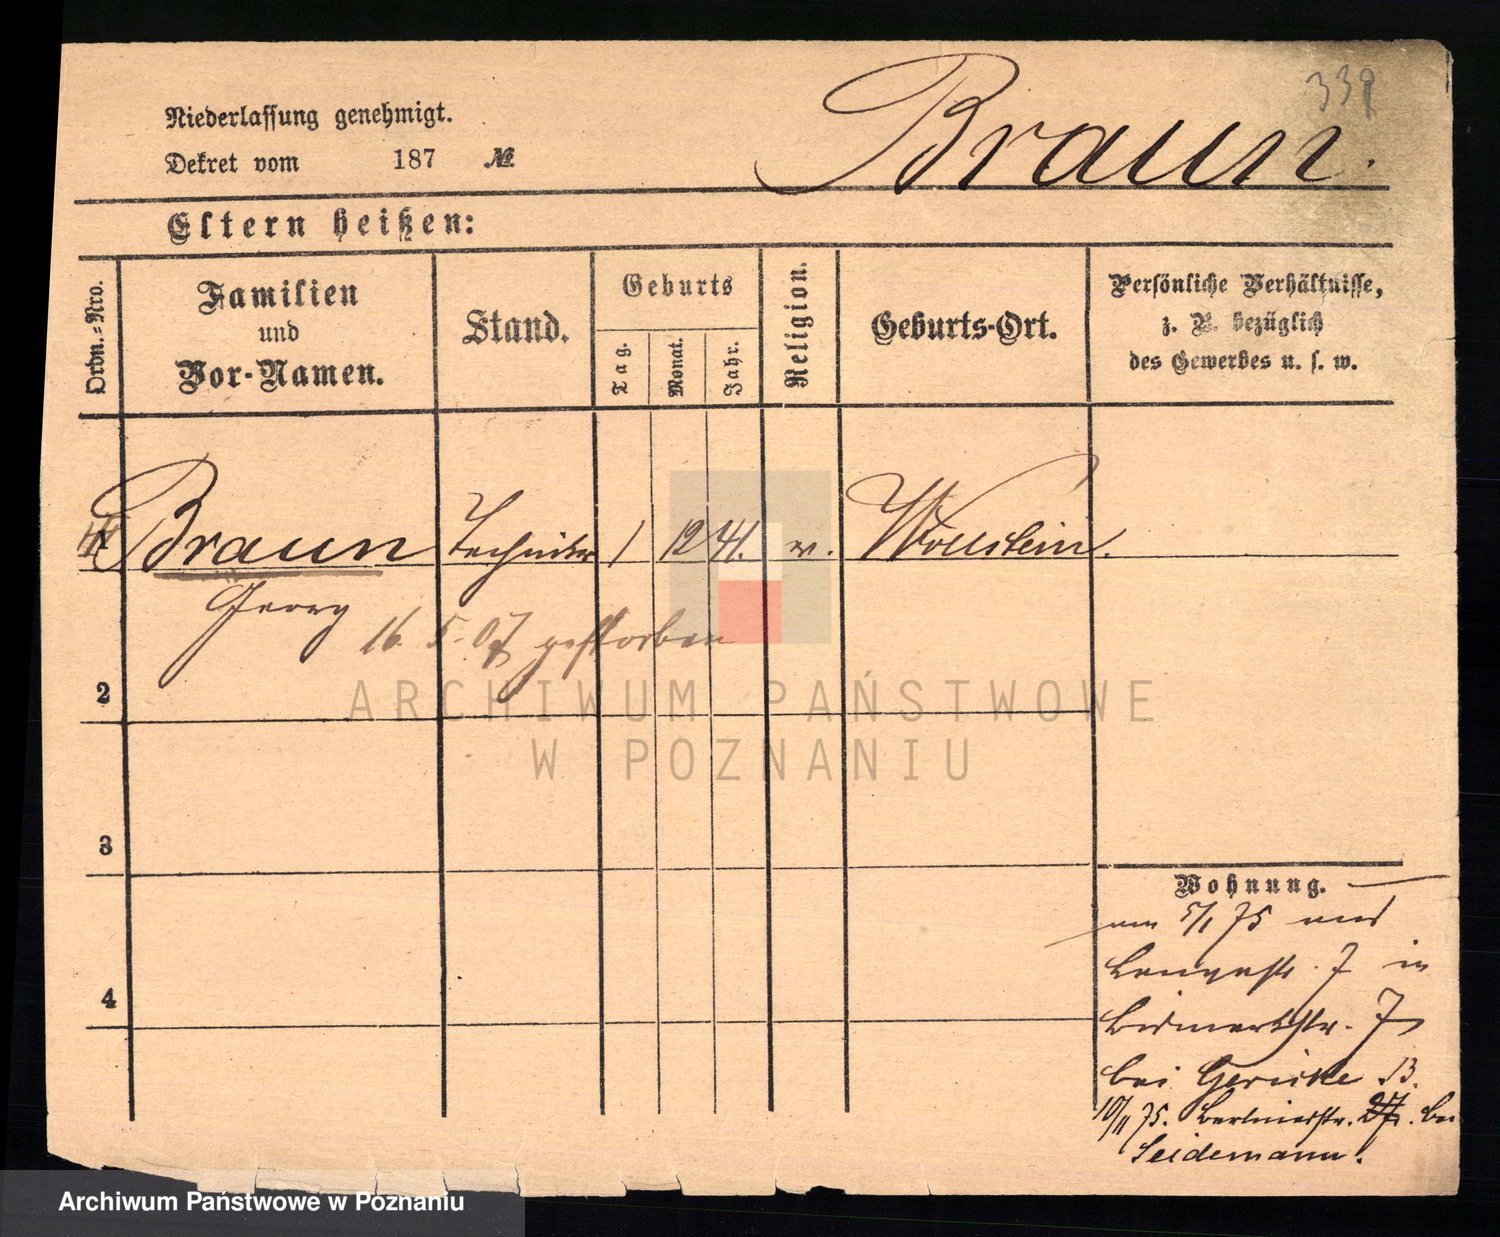 339
Niederlassung genehmigt.
Braun.
Dekret vom 187 №
Eltern heißen:
Ordn.-Nro.
Familien und Vor-Namen.
Stand.
Geburts
Tag.
Monat.
Jahr.
Religion.
Geburts-Ort.
Persönliche Verhältnisse,
z. B. bezüglich
des Gewerbes u. s. w.
Braun Techniker 1 12 41. Wollstein.
Georg
16. 5. 07 gestorben
2
3
4
Wohnung.
5/1 75
Langestr. 7 in
Bismarckstr. 7
bei Gericke
10/11 75. Berlinerstr. 27. bei
Seidemann.
ARCHIWUM PAŃSTWOWE
W POZNANIU
Archiwum Państwowe w Poznaniu